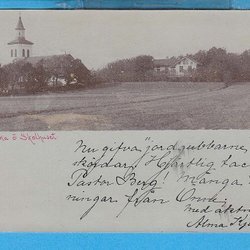 na o Skolhuset
Nu gifva "jordgubbarne,
Hjärtlig tac
Pastor Berg! Många
ningar från
med
Alma